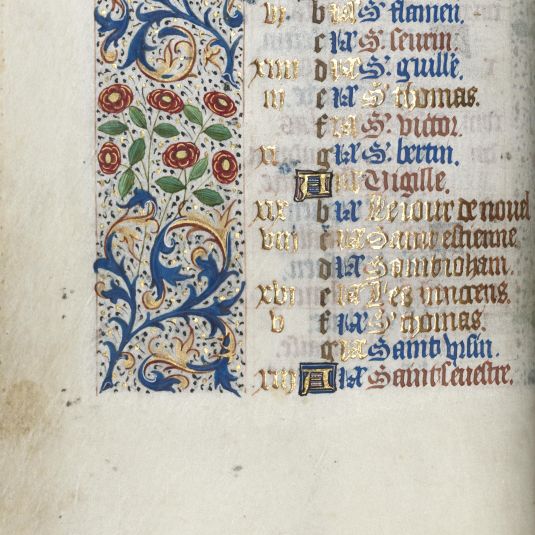 vi b kl S. flamen.
c kl S. seurin.
xiiii d kl S. guille.
iii e kl S. thomas.
f kl S. victor.
xi g kl S. bertin.
A kl Vigille.
xix b kl Le iour de nouel
viii c kl Saint estienne
d kl Saint iohan.
xvi e kl Les innocens.
v f kl S. thomas.
g kl Saint vrsin.
xiii A kl Saint seuestre.